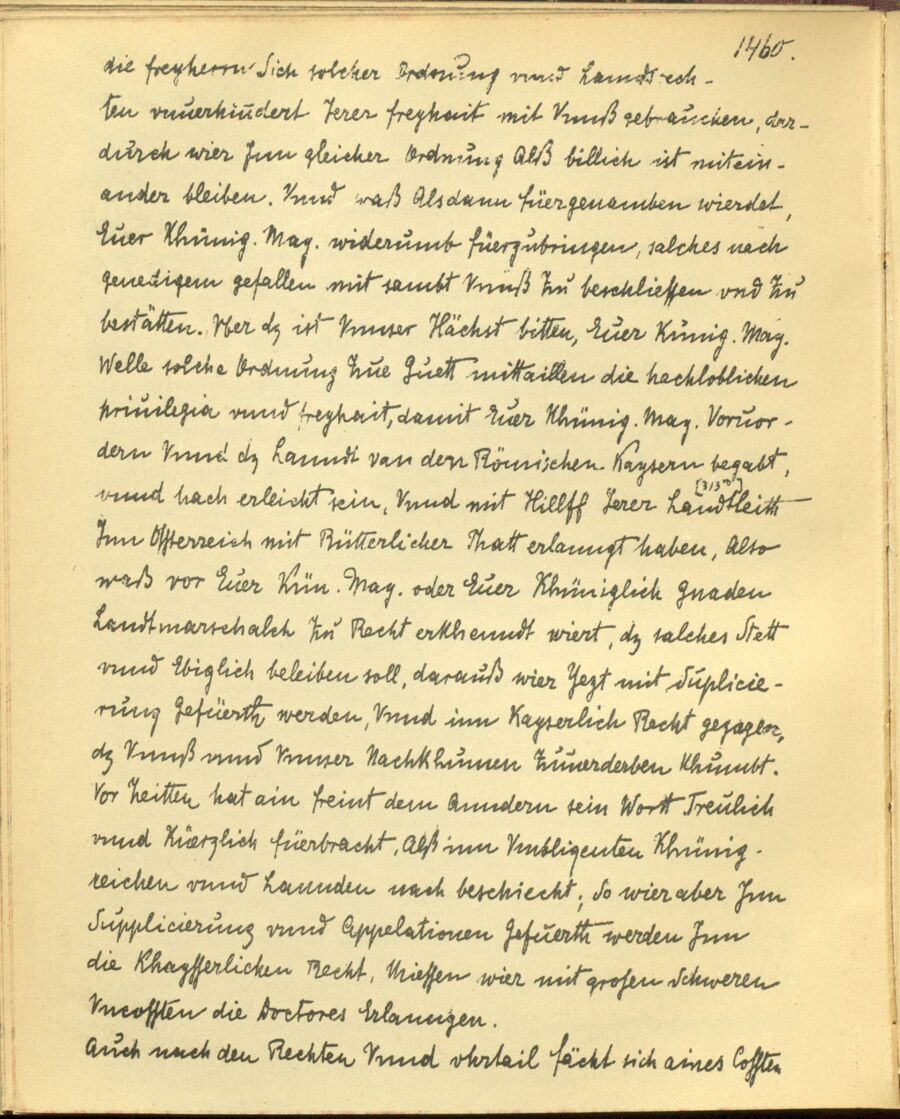 1460.
die freyherrn Sich solcher Ordnung vnnd Landtrech-
ten vnuerhindert Jerer freyhait mit Vnnß gebrauchen, dar-
durch wier Jnn gleicher Ordnung Alß billich ist mitein-
ander bleiben. Vnnd waß Alsdann füergenamben wierdet,
Euer Khünig. May. widerumb füerzubringen, salches nach
genedigem gefallen mit sambt Vnnß Zu beschliessen vnd Zu
bestätten. Vber dz ist Vnnser Hächst bitten, Euer Künig. May.
Welle solche Ordnung Zue Guett mittaillen die hachloblichen
priuilegia vnnd freyhait, damit Euer Khünig. May. Voruor-
dern Vnnd dz Lanndt van den Römischen Kaysern begabt,
[313v]
vnnd hach erleicht sein, Vnnd mit Hillff Jerer Landtleith
Jnn Össterreich mit Rütterlicher Thatt erlanngt haben, Also
waß vor Euer Kün. May. oder Euer Khüniglich Gnaden
Landtmarschalch Zu Recht erkhenndt wiert, dz salches Stett
vnnd Ebiglich beleiben soll, darauß wier Yezt mit Suplicie-
rung Gefüerth werden, Vnnd inn Kayserlich Recht gezagen,
dz Vnnß vnnd Vnnser Nachkhumen Zuuerderben Khumbt.
Vor Zeitten hat ain freint dem Anndern sein Wortt Treulich
vnnd Küerzlich füerbracht, Alß inn Vmbligenten Khünig-
reichen vnnd Lannden nach beschiecht; So wier aber Jnn
Supplicierung vnnd Appelationen Gefuerth werden Jnn
die Khaysserlichen Recht, Miessen wier mit grosen Schweren
Vncossten die Doctores Erlanngen.
Auch nach den Rechten Vnnd vhrtail fächt sich aines Cossten